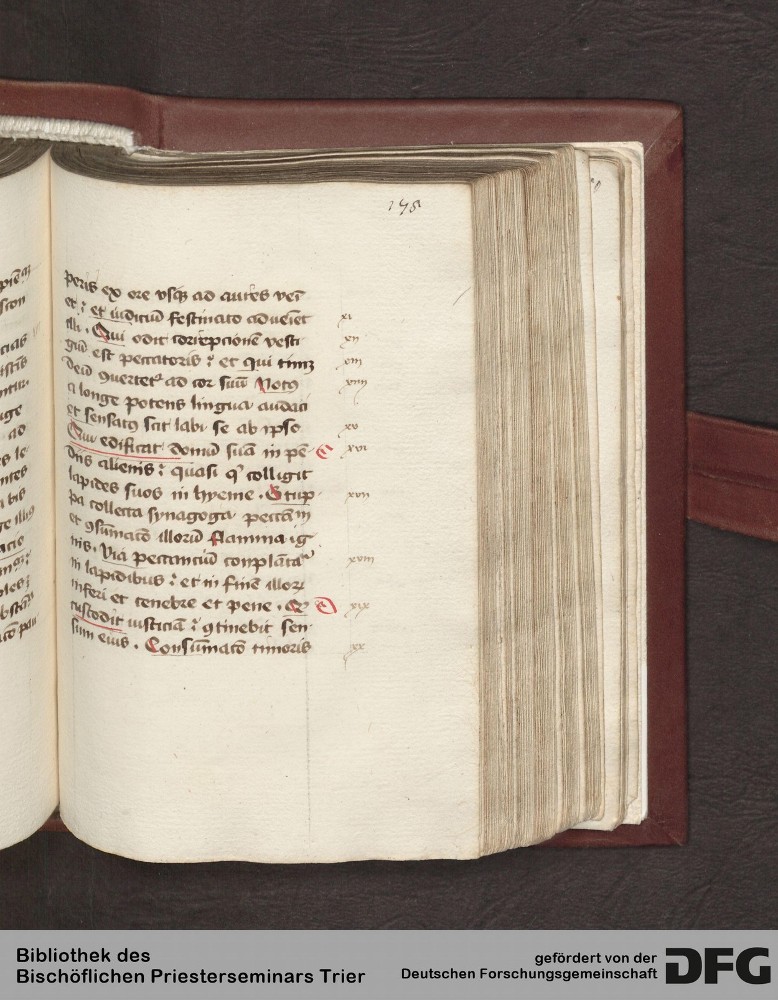 195
peris ex ore vsqꝫ ad aures vei᷑
et : et iudiciū festinato adueiet
illi . Qui odit correpcionē vesti
giū est peccatoris : et qui timꝫ
deū ꝯuertetᷣ ad cor suū Notꝰ
a longe potens lingua audaci
et sensatꝰ scit labi se ab ipso
Qui edificat domū suā in pē
dijs alienis : quasi qͥ colligit
lapides suos in hyeme . Stup
pa collecta synagoga peccāᵐ
et ꝯsūmacō illorū flamma ig
nis . Via peccanciū conplāta
in lapidibus : et in fine illoꝝ
inferi et tenebre et pene . Qͥ
custodit iusticiā : ꝯtinebit sen
sum eius . Consūmacō timoris
xi
xii
xiii
xiiii
xv
xvi
xvii
xviii
xix
xx
Bibliothek des
Bischöflichen Priesterseminars Trier
gefördert von der
Deutschen Forschungsgemeinschaft
DFG